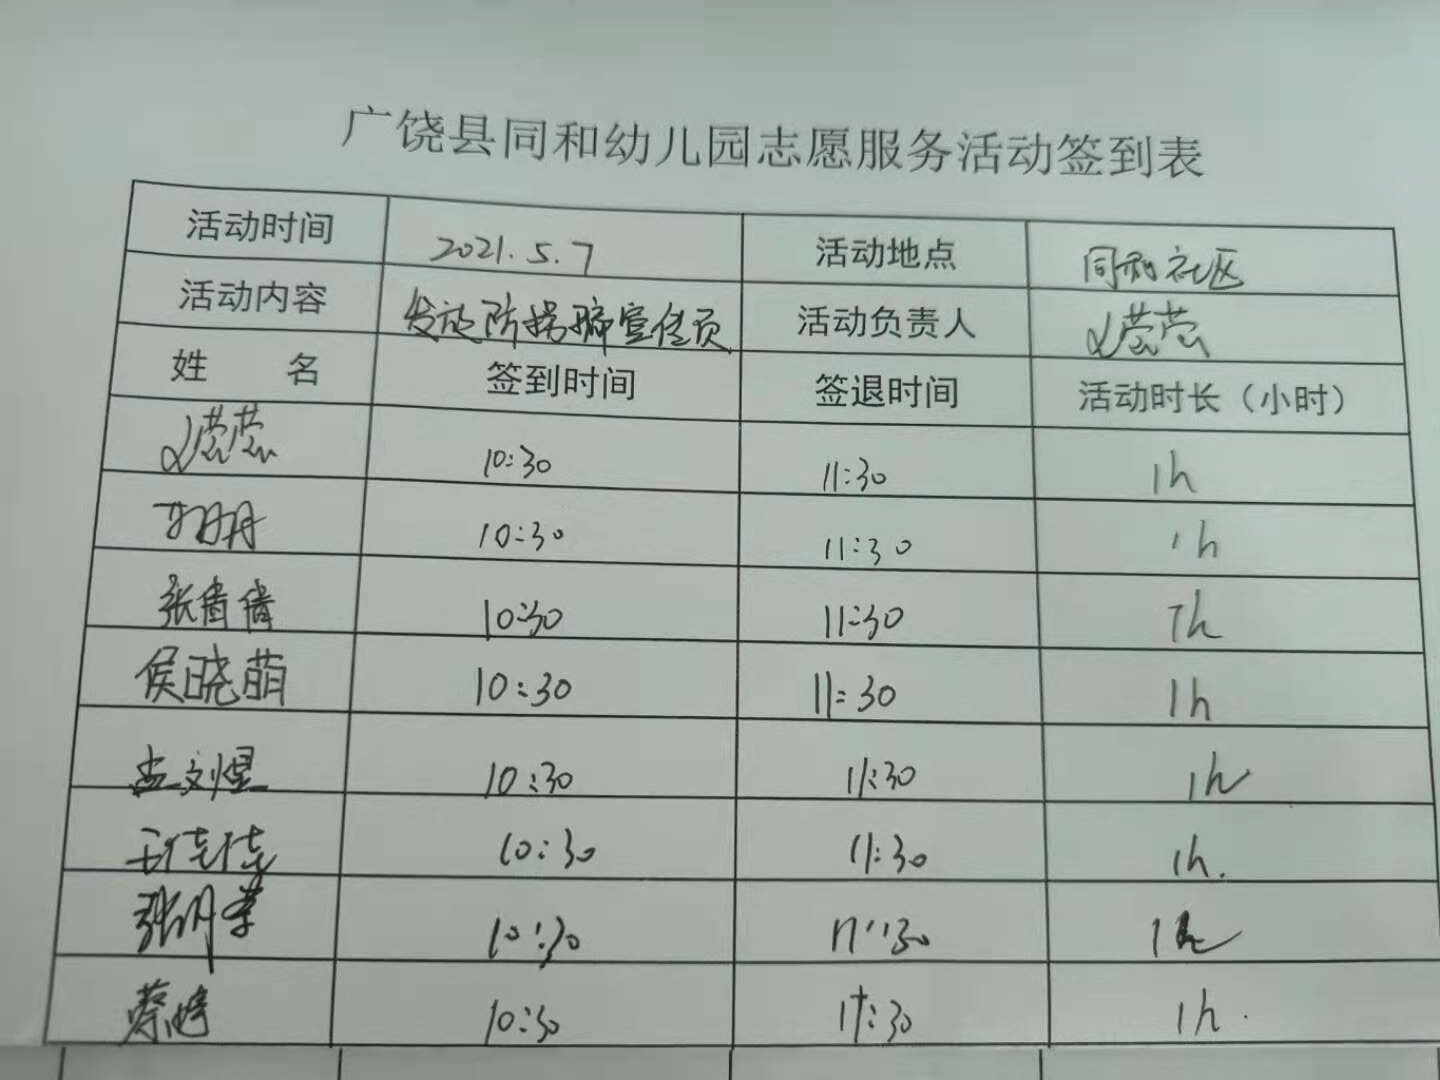 广饶县同和幼儿园志愿服务活动签到表
活动时间 2021.5.7 活动地点 同和社区
活动内容 发放防拐骗宣传页 活动负责人
姓 名 签到时间 签退时间 活动时长（小时）
10:30 11:30 1h
10:30 11:30 1h
张倩倩 10:30 11:30 1h
侯晓萌 10:30 11:30 1h
孟文煜 10:30 11:30 1h
王佳佳 10:30 11:30 1h.
张明 10:30 11:30 1h
蔡婷 10:30 11:30 1h.